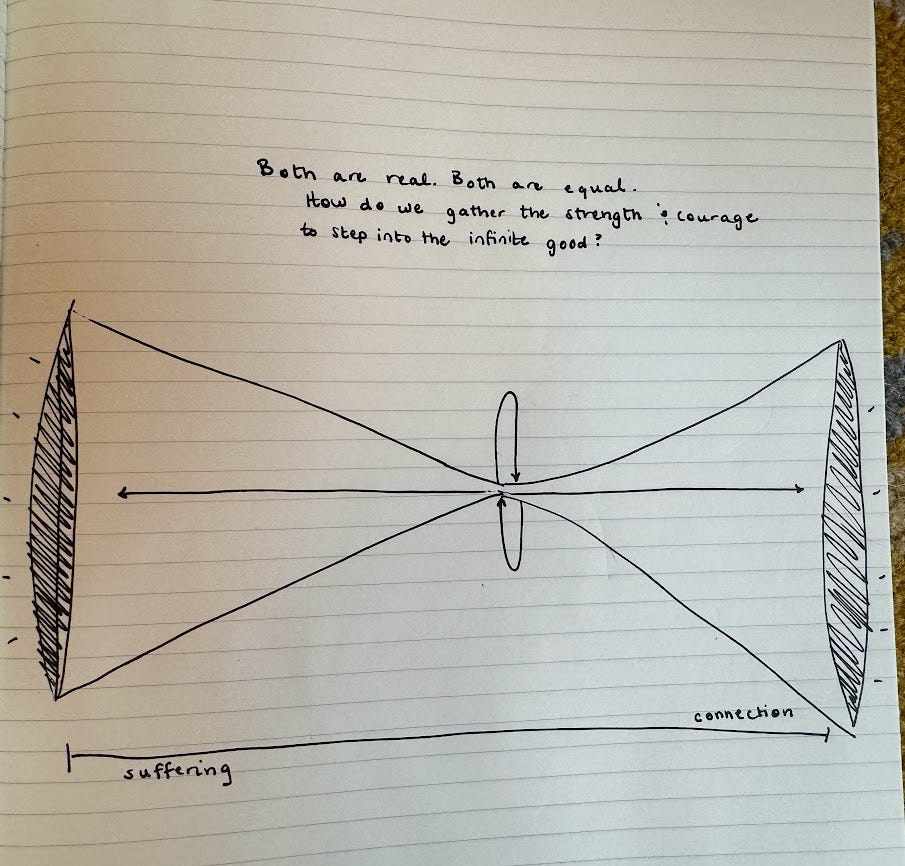 Both are real. Both are equal.
How do we gather the strength & courage
to step into the infinite good?
connection
suffering